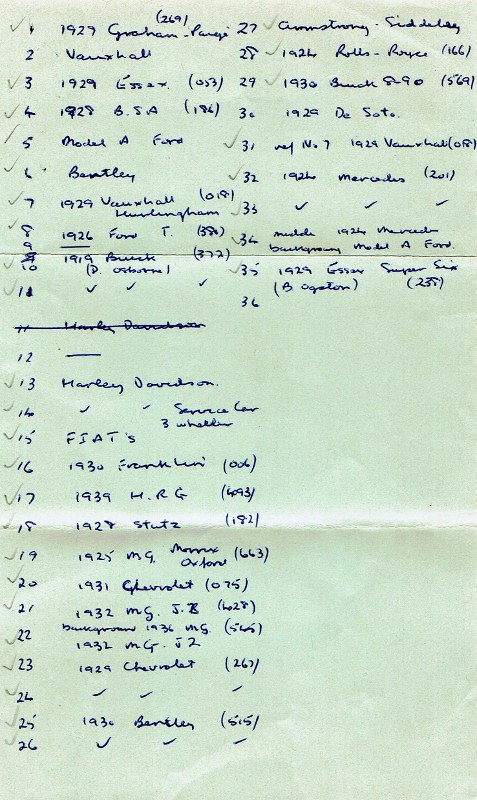 (269)
1 1929 Graham-Paige
2 Vauxhall
3 1929 Essex (053)
4 1928 B.S.A (186)
5 Model A Ford
6 Bentley
7 1929 Vauxhall (018)
Hurlingham
8 1926 Ford T. (384)
9 —
10 1919 Buick (372)
(D. Osborne)
11 ✓ ✓ ✓
11 Harley Davidson
12 —
13 Harley Davidson.
14 ✓ ✓ Service Car
3 wheeler
15 FIAT's
16 1930 Franklin (006)
17 1939 H.R.G (493)
18 1928 Stutz (182)
19 1925 M.G. Morris (663)
Oxford
20 1931 Chevrolet (075)
21 1932 M.G. J.2 (628)
background 1936 M.G. (565)
22 1932 M.G. J2
23 1929 Chevrolet (267)
24 ✓ ✓ ✓
25 1930 Bentley (515)
26 ✓ ✓ ✓
27 Armstrong-Siddeley
28 1924 Rolls-Royce (166)
29 1930 Buick 8-90 (569)
30 1929 De Soto.
31 ref No 7 1929 Vauxhall (018)
32 1924 Mercedes (201)
33 ✓ ✓ ✓
34 middle 1924 Mercedes
background Model A Ford.
35 1929 Essex Super Six
(B Ogston) (238)
36